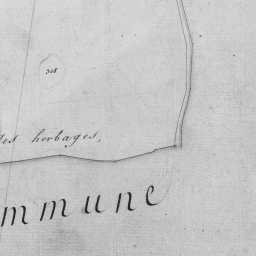 308
des herbages,
mmune